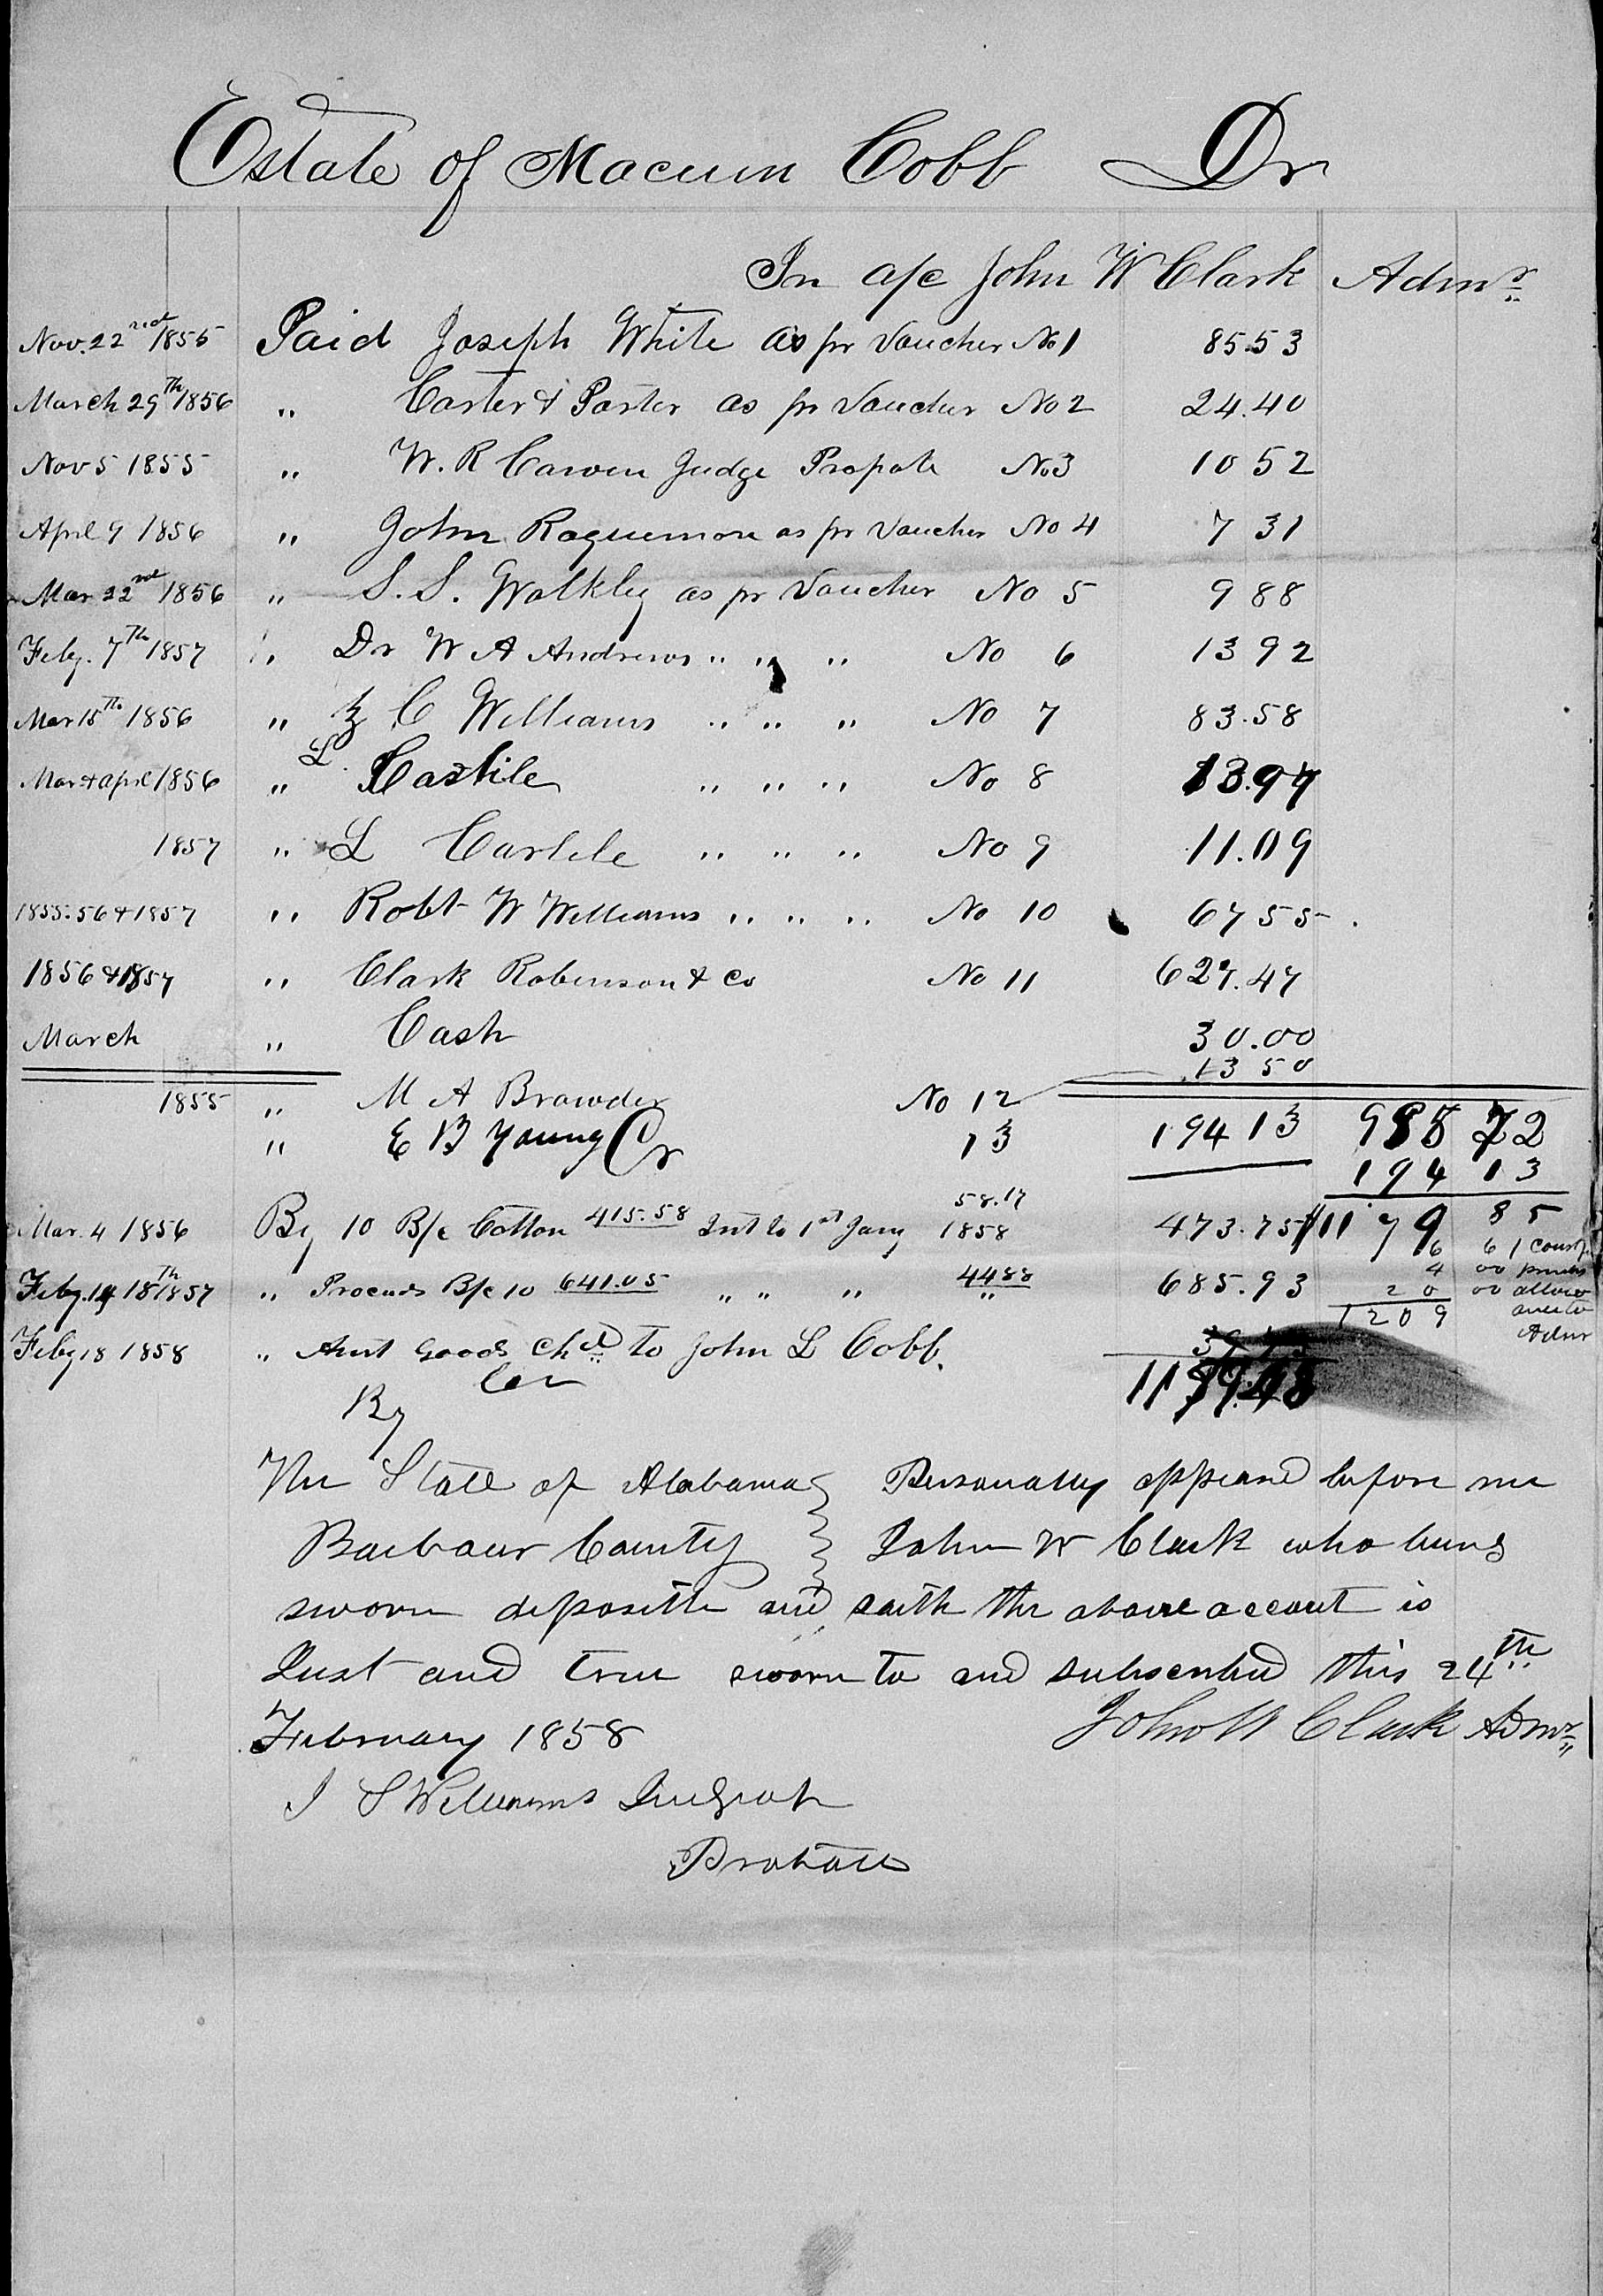 Estate of Macum Cobb Dr
In a/c John W Clark Admr
Nov. 22nd 1855 Paid Joseph White as pr Voucher No 1 85.53
March 29th 1856 " Carter & Porter as pr Voucher No 2 24.40
Nov 5 1855 " W. R Cawen Judge Propate No 3 10 52
April 9 1856 " John Roquemore as pr Voucher No 4 7 31
Mar 22nd 1856 " S. S. Walkley as pr Voucher No 5 9 88
Feby. 7th 1857 " Dr W A Andrews " " " No 6 13 92
Mar 15th 1856 " Z C Williams " " " No 7 83.58
Mar & april 1856 " L Castile " " " No 8 13.97
1857 " L Carlile " " " No 9 11.09
1855. 56 & 1857 " Robt W Williams " " " No 10 67 55
1856 & 1857 " Clark Robinson & Co No 11 627.47
March " Cash 30.00
13 50
1855 " M A Browder No 12
" E B Young 13 194 13 985 72
Cr 194 13
58.17
Mar. 4 1856 By 10 B/c Cotton 415.58 Int to 1st Jany 1858 473.75 $1179 85
6 61 Court
4 00
Feby. 14 18th 1857 " Proceeds B/c 10 641.05 " " " 44 88 " 685.93 20 00 allow
ance to
1209
Admr
Feby 18 1858 " Amt Goods Chd to John L Cobb.
By
The State of Alabama } Personally appeard before me
Barbour County } John W Clark who being
sworn deposeth and saith the above accout is
Just and true sworn to and subscribed this 24th
February 1858 John W Clark Admr
S Williams Judge of
Probate